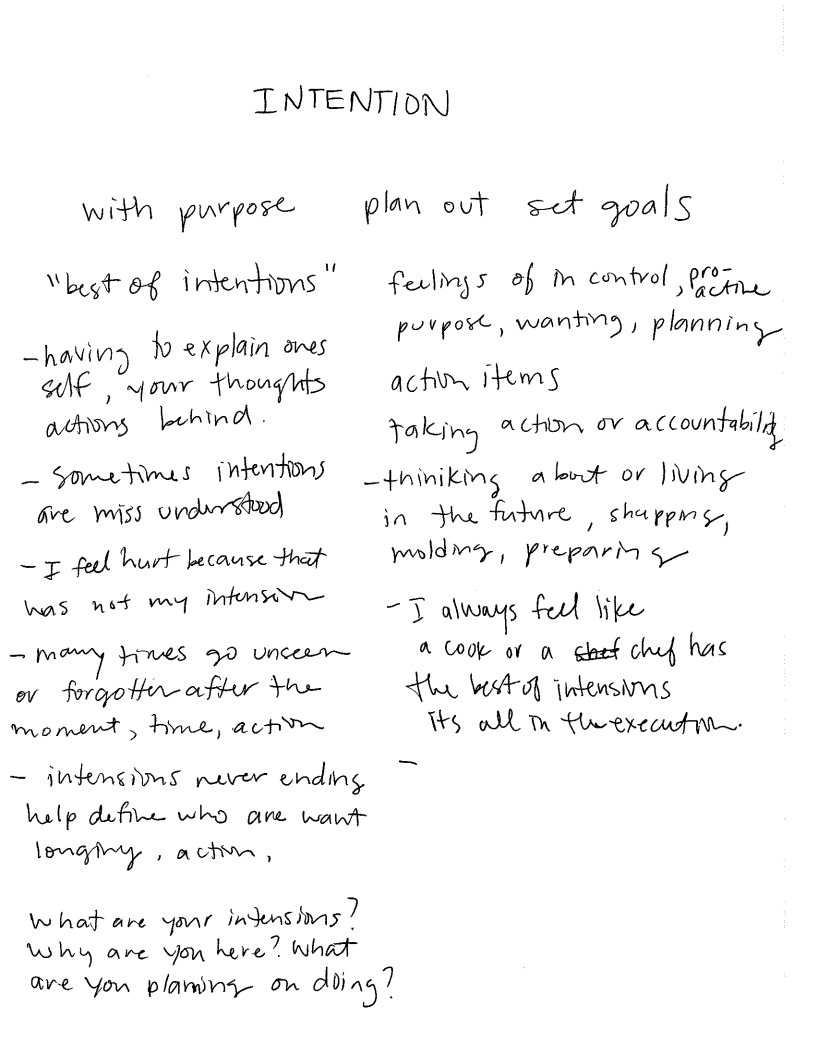 INTENTION
with purpose plan out set goals
"best of intentions"
- having to explain ones
self, your thoughts
actions behind.
- sometimes intentions
are miss understood
- I feel hurt because that
was not my intension
- many times go unseen
or forgotten after the
moment, time, action
- intensions never ending
help define who are want
longing, action,
What are your intensions?
Why are you here? What
are you planing on doing?
feelings of in control, pro-
active
purpose, wanting, planning
action items
taking action or accountability
- thiniking about or living
in the future, shapping,
molding, preparing
- I always feel like
a cook or a chef chef has
the best of intensions
its all in the execution.
-